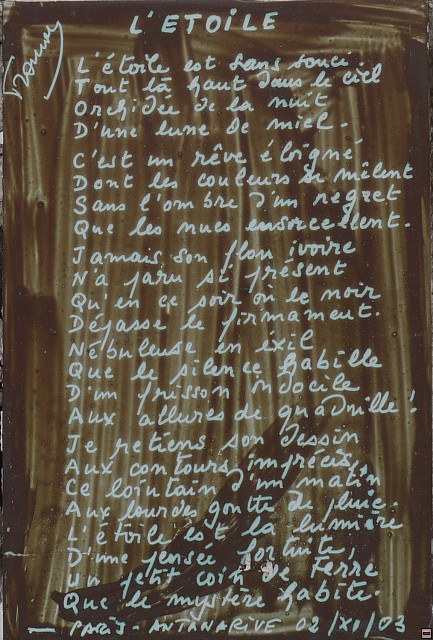 L'ETOILE
L'étoile est sans souci
Tout là haut dans le ciel
Orchidée de la nuit
D'une lune de miel.
C'est un rêve éloigné
Dont les couleurs se mêlent
Sans l'ombre d'un regret
Que les nues ensorcellent.
Jamais son flou ivoire
N'a paru si présent
Qu'en ce soir où le noir
Dépasse le firmament.
Nébuleuse en éxil
Que le silence habille
D'un frisson indocile
Aux allures de quadrille!
Je retiens son dessin
Aux contours imprécis,
Ce lointain d'un matin
Aux lourdes goutte de pluie.
L'étoile est la lumière
D'une pensée fortuite,
Un petit coin de Terre
Que le mystère habite.
— PARIS - ANTANARIVE 02/XI/03